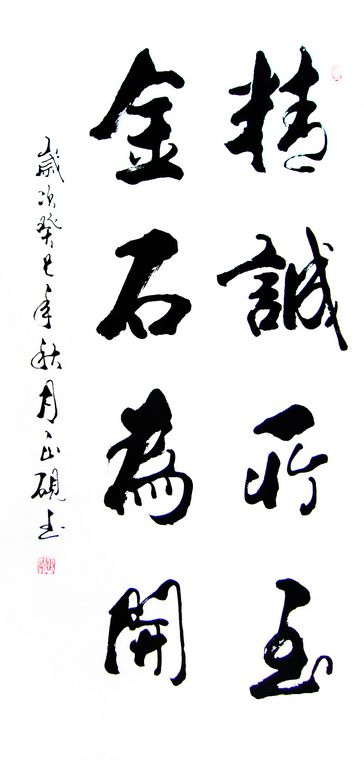 精誠所至
金石為開
歲次癸巳年秋月正硯书